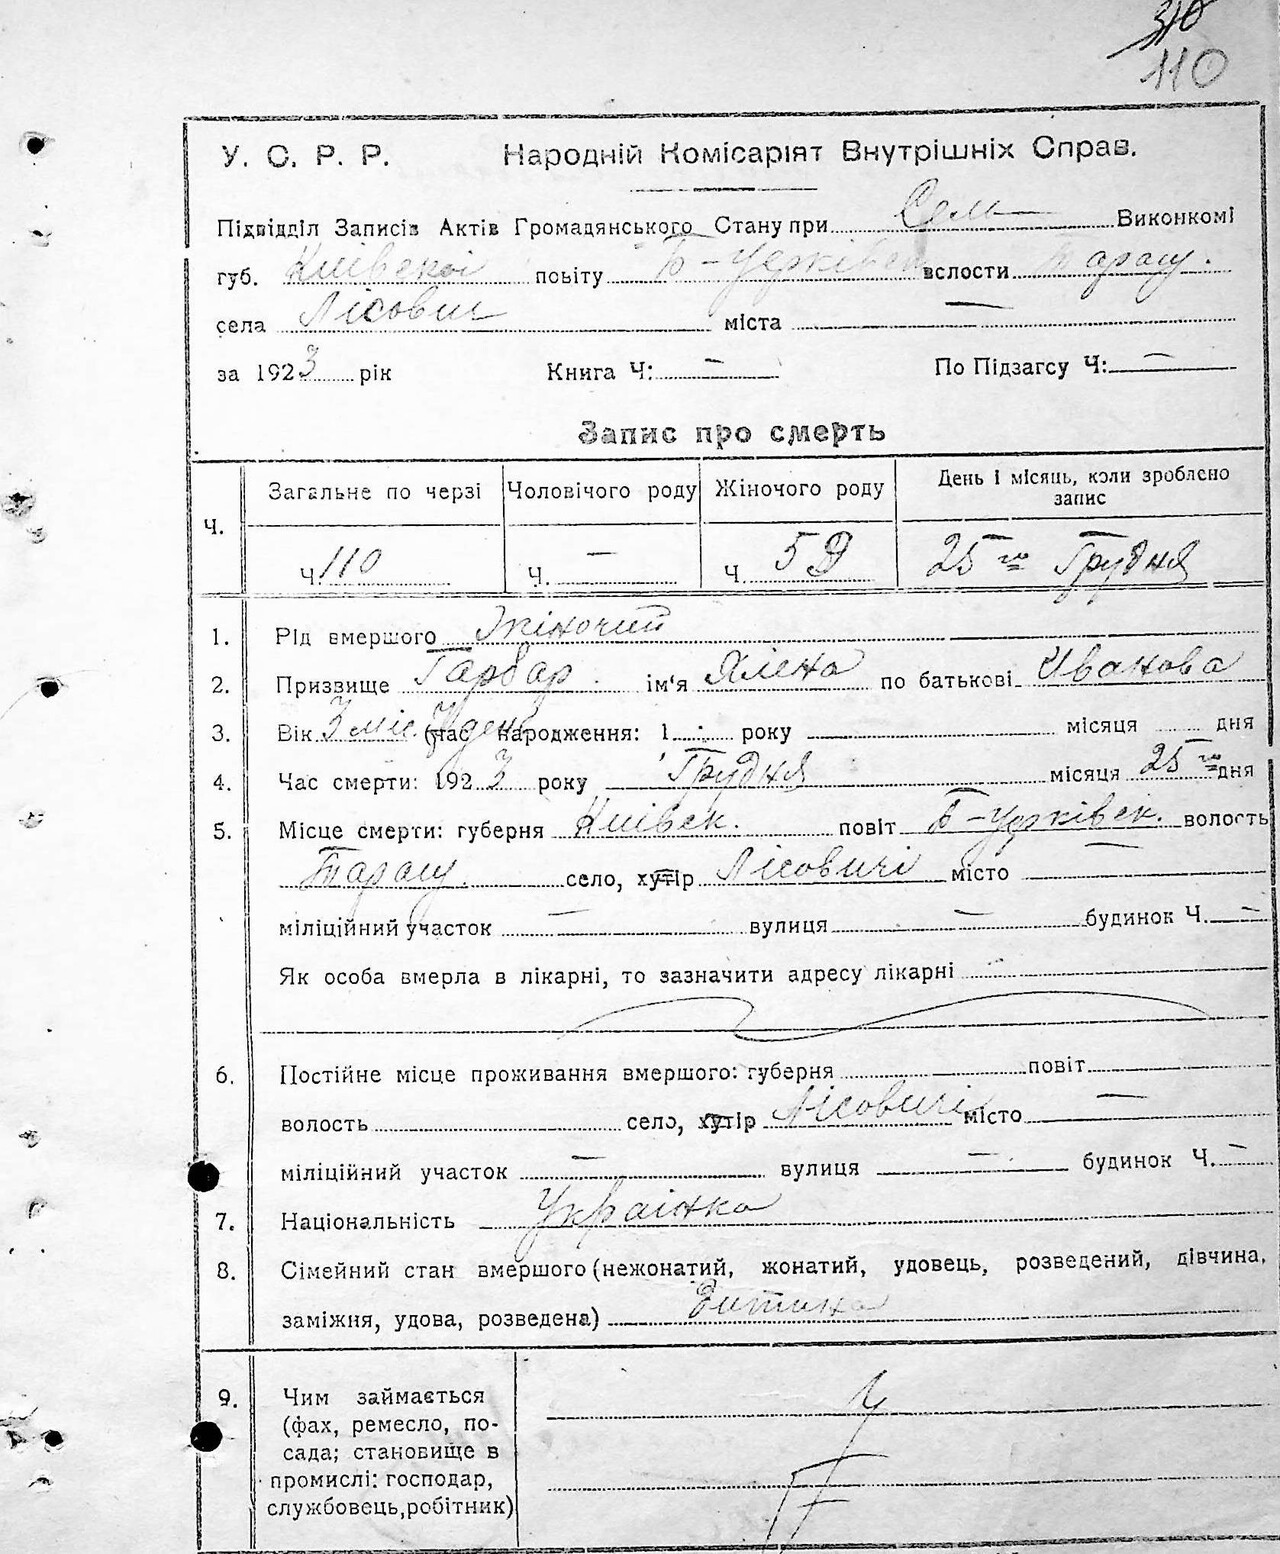 110
У. С. Р. Р. Народній Комісаріят Внутрішніх Справ.
Підвідділ Записів Актів Громадянського Стану при Сель Виконкомі
губ. Київської повіту Б-Церківськ волости Таращ.
села Лісович міста —
за 1923 рік Книга Ч: — По Підзагсу Ч: —
Запис про смерть
Ч. Загальне по черзі Чоловічого роду Жіночого роду День і місяць, коли зроблено запис
Ч 110 Ч. — Ч. 59 25го Грудня
1. Рід вмершого Жіночий
2. Призвище Гарбар. ім'я Ялена по батькові Иванова
3. Вік 3 міс. 3 ден (час народження: 1 року місяця дня
4. Час смерти: 1923 року Грудня місяця 25го дня
5. Місце смерти: губерня Київськ. повіт Б-Церківськ. волость
Таращ. село, хутір Лісовичі місто —
міліційний участок — вулиця — будинок Ч. —
Як особа вмерла в лікарні, то зазначити адресу лікарні —
6. Постійне місце проживання вмершого: губерня повіт
волость село, хутір Лісовичі місто —
міліційний участок — вулиця — будинок Ч. —
7. Національність Українка
8. Сімейний стан вмершого (нежонатий, жонатий, удовець, розведений, дівчина,
заміжня, удова, розведена) Дитина
9. Чим займається
(фах, ремесло, по-
сада; становище в
промислі: господар,
службовець, робітник)